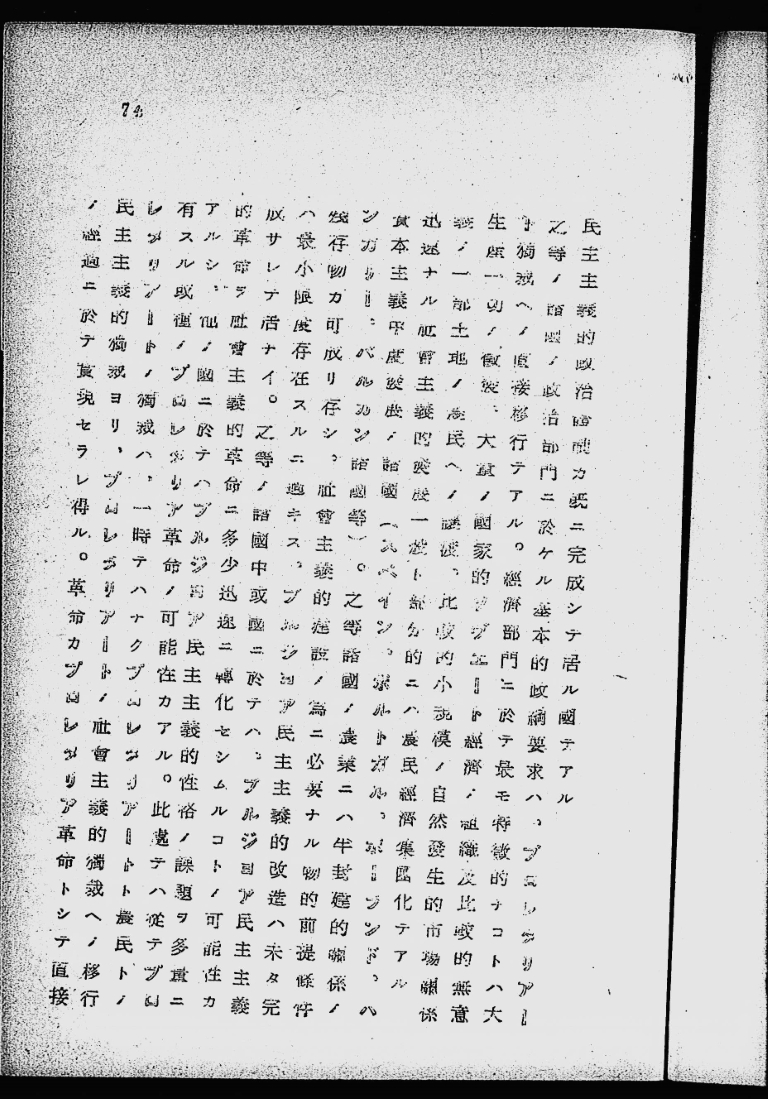 74
民主主義的政治體制カ既ニ完成シテ居ル國テアル
之等ノ諸國ノ政治部門ニ於ケル基本的政綱要求ハ、プロレタリアー
ト獨裁ヘノ直接移行テアル。經濟部門ニ於テ最モ特徴的ナコトハ大
生産一切ノ徴發、大量ノ國家的ソヴエート經濟ノ組織及比較的無意
義ノ一部土地ノ農民ヘノ讓渡、比較的小規模ノ自然發生的市場關係
迅速ナル社會主義的發展一般ト部分的ニハ農民經濟集團化テアル
資本主義中度發展ノ諸國（スペイン、ポルトガル、ポーランド、ハ
ンガリー、バルカン諸國等）。之等諸國ノ農業ニハ半封建的關係ノ
殘存物カ可成リ存シ、社會主義的建設ノ爲ニ必要ナル物的前提條件
ハ最小限度存在スルニ過キス、ブルジヨア民主主義的改造ハ未タ完
成サレテ居ナイ。之等ノ諸國中或國ニ於テハ、ブルジヨア民主主義
的革命ヲ社會主義的革命ニ多少迅速ニ轉化セシムルコトノ可能性カ
アルシ、他ノ國ニ於テハブルジヨア民主主義的性格ノ課題ヲ多量ニ
有スル或種ノプロレタリア革命ノ可能性カアル。此處テハ從テプロ
レタリアートノ獨裁ハ、一時テハナクプロレタリアートト農民トノ
民主主義的獨裁ヨリ、プロレタリアートノ社會主義的獨裁ヘノ移行
ノ經過ニ於テ實現セラレ得ル。革命カプロレタリア革命トシテ直接